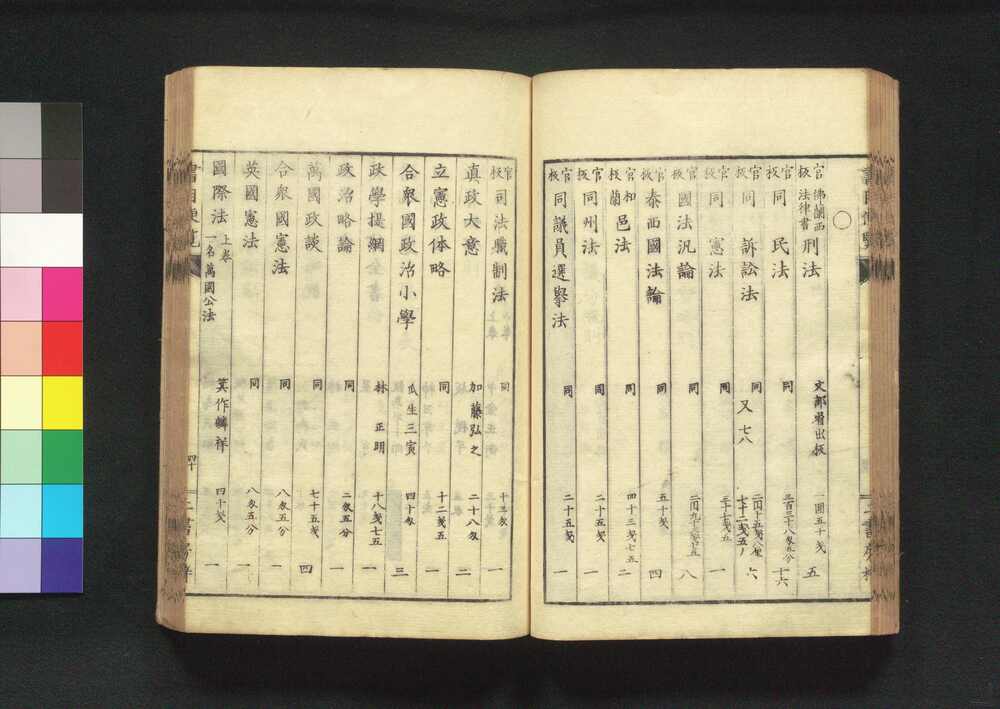 〇
官板 佛蘭西法律書 刑法 文部省出板 一圓五十戔 五
官板 同 民法 同 十六
官板 同 訴訟法 同 又七八 六
官板 同 憲法 同 一
官板 國法汎論 同 八
官板 泰西國法論 同 五十戔 四
官板 和蘭邑法 同 四十三戔七五 二
官板 同州法 同 二十五戔 一
官板 同議員選擧法 同 二十五戔 一
官板 司法職制法 同 十三匁 一
眞政大意 加藤弘之 二十八匁 二
立憲政体略 同 十二戔五 一
合衆國政治小學 瓜生三寅 四十匁 三
政學提綱 林正明 十八戔七五 一
政治略論 同 二匁五分 一
萬國政談 同 七十五戔 四
合衆國憲法 同 八匁五分 一
英國憲法 同 八匁五分 一
國際法 上卷 一名萬國公法 箕作麟祥 四十戔 一